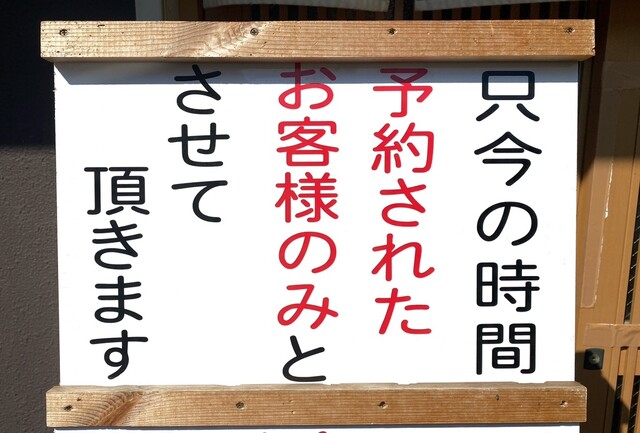 只今の時間
予約された
お客様のみと
させて
頂きます